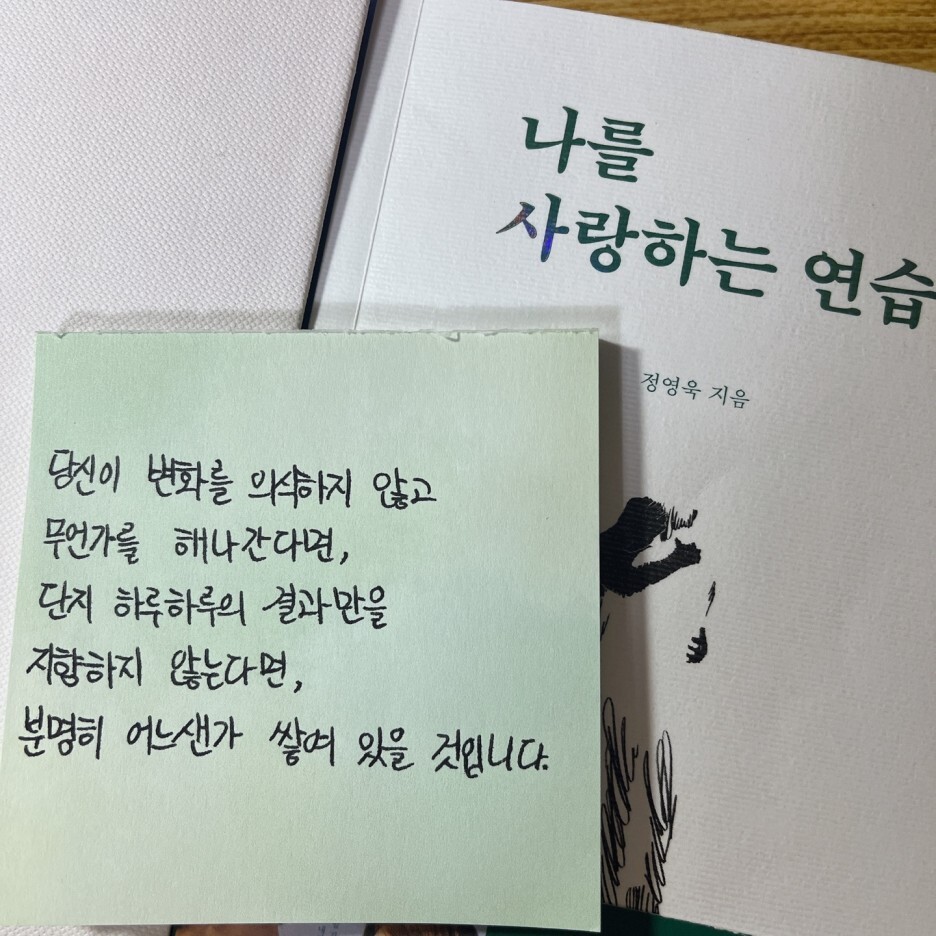 나를
사랑하는 연습
정영욱 지음
당신이 변화를 의식하지 않고
무언가를 해나간다면,
단지 하루하루의 결과만을
지향하지 않는다면,
분명히 어느샌가 쌓여 있을 것입니다.